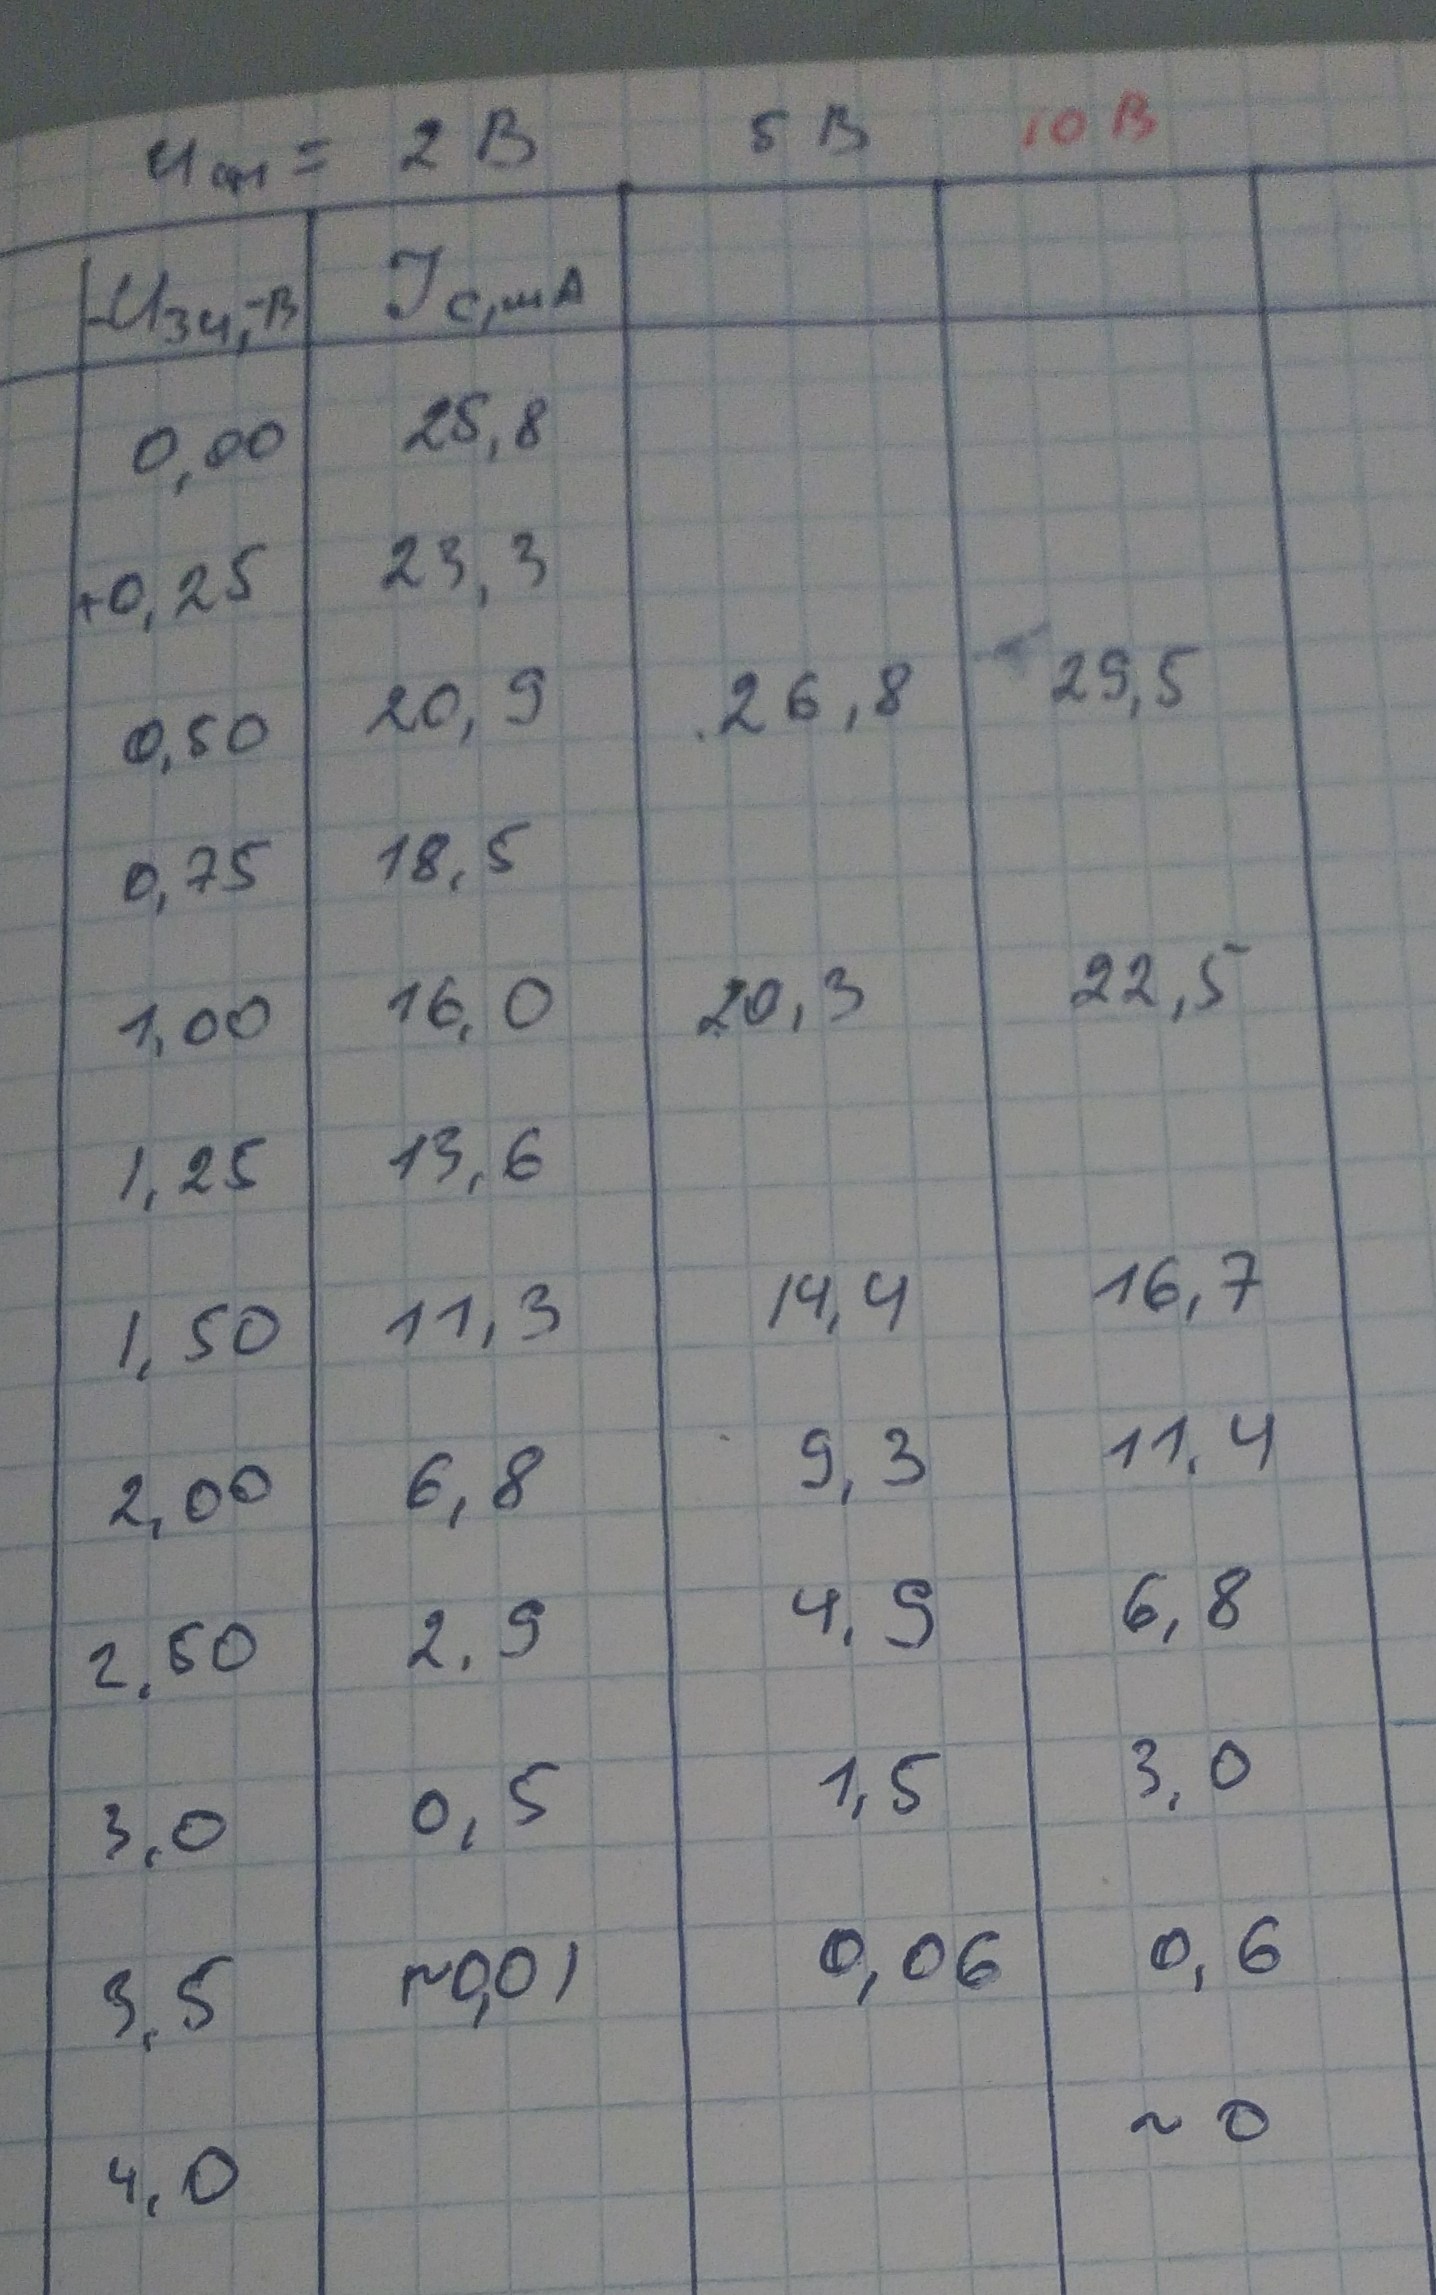 Uси = 2 В 5 В 10 В
-Uзи,-В Iс,мА
0,00 25,8
+0,25 23,3
0,50 20,9 26,8 29,5
0,75 18,5
1,00 16,0 20,3 22,5
1,25 13,6
1,50 11,3 14,4 16,7
2,00 6,8 9,3 11,4
2,50 2,9 4,9 6,8
3,0 0,5 1,5 3,0
3,5 ~0,01 0,06 0,6
4,0 ~ 0